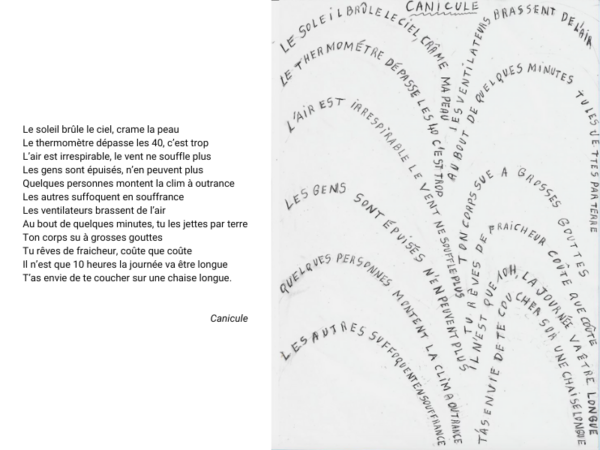 Le soleil brûle le ciel, crame la peau
Le thermomètre dépasse les 40, c'est trop
L'air est irrespirable, le vent ne souffle plus
Les gens sont épuisés, n'en peuvent plus
Quelques personnes montent la clim à outrance
Les autres suffoquent en souffrance
Les ventilateurs brassent de l'air
Au bout de quelques minutes, tu les jettes par terre
Ton corps su à grosses gouttes
Tu rêves de fraicheur, coûte que coûte
Il n'est que 10 heures la journée va être longue
T'as envie de te coucher sur une chaise longue.
Canicule
CANICULE
LE SOLEIL BRÛLE LE CIEL, CRÂME MA PEAU
LE THERMOMÉTRE DÉPASSE LES 40 C'EST TROP
L'AIR EST IRRESPIRABLE LE VENT NE SOUFFLE PLUS
LES GENS SONT ÉPUISÉS N'EN PEUVENT PLUS
QUELQUES PERSONNES MONTENT LA CLIM A OUTRANCE
LES AUTRES SUFFOQUENT EN SOUFFRANCE
LES VENTILATEURS BRASSENT DE L'AIR
AU BOUT DE QUELQUES MINUTES TU LES JETTES PAR TERRE
TON CORPS SUE A GROSSES GOUTTES
TU RÊVES DE FRAICHEUR COÛTE QUE COÛTE
IL N'EST QUE 10H, LA JOURNÉE VA ÊTRE LONGUE
T'AS ENVIE DE TE COUCHER SUR UNE CHAISE LONGUE